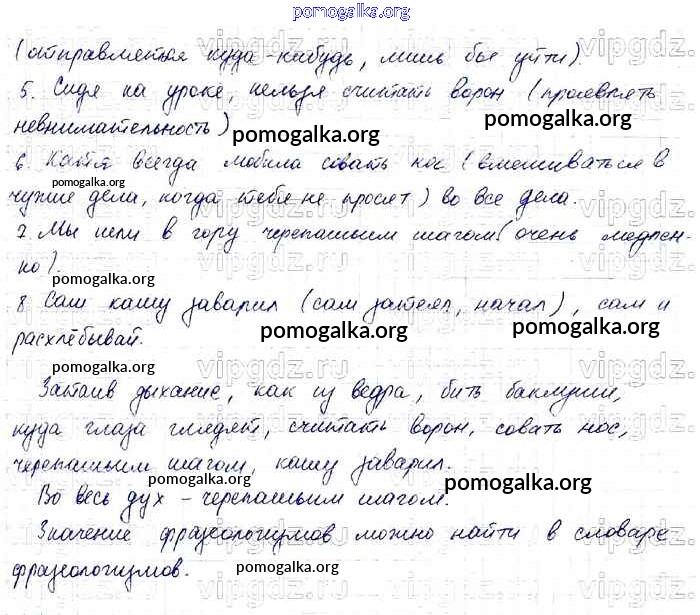 pomogalka.org
(отправляется куда-нибудь, лишь бы уйти).
5. Сидя на уроке, нельзя считать ворон (проявлять
невнимательность)
pomogalka.org
pomogalka.org
6. Катя всегда любила совать нос (вмешиваться в
pomogalka.org
чужие дела, когда тебя не просят) во все дела.
7. Мы шли в гору черепашьим шагом (очень медлен-
но).
pomogalka.org
8 Сам кашу заварил (сам затеял, начал), сам и
pomogalka.org
pomogalka.org
расхлёбывай.
pomogalka.org
Затаив дыхание, как из ведра, бить баклуши,
куда глаза глядят, считать ворон, совать нос,
черепашьим шагом, кашу заварил.
pomogalka.org
pomogalka.org
Во весь дух - черепашьим шагом.
Значение фразеологизмов можно найти в словаре
фразеологизмов.
pomogalka.org